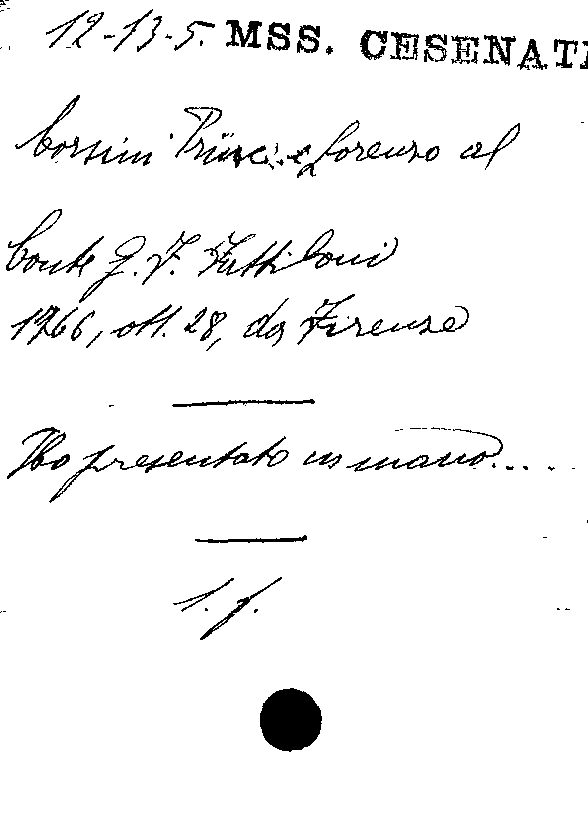 12-13-5. MSS. CESENATI
Corsini Principe Lorenzo al
Conte G. F. Fattiboni
1766, ott. 28, da Firenze
Ho presentato in mano....
1. f.